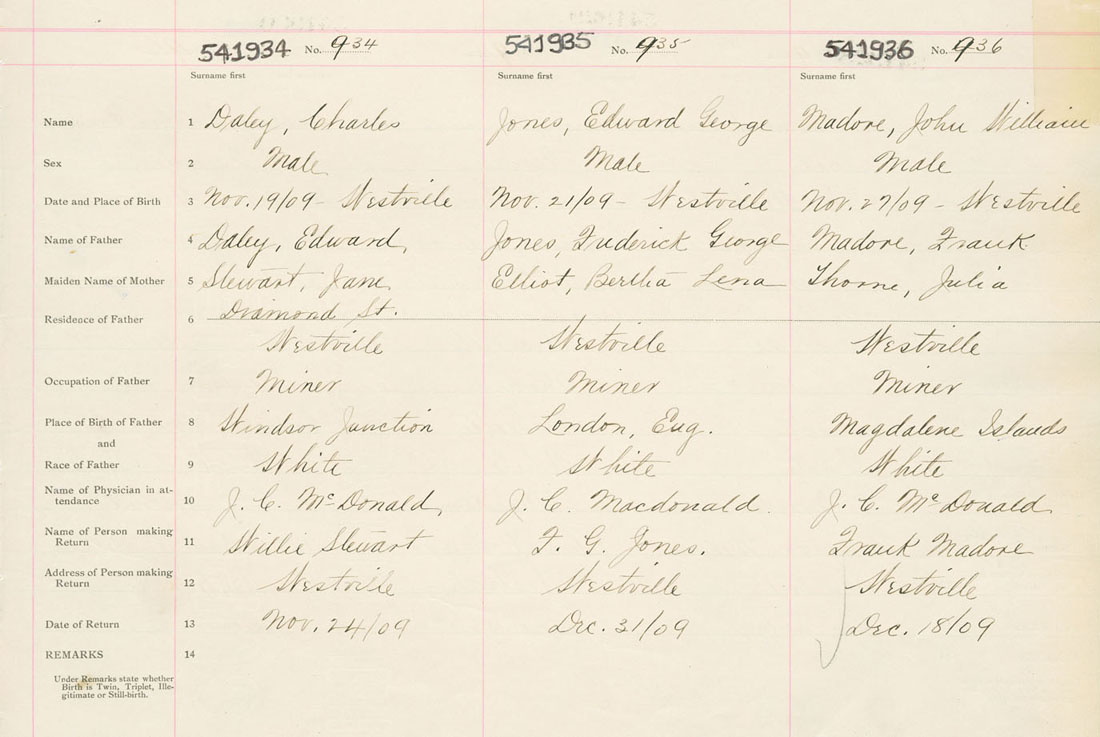 541934 No. 934 541935 No. 935 541936 No. 936
Surname first Surname first Surname first
Name 1 Daley, Charles Jones, Edward George Madore, John William
Sex 2 Male Male Male
Date and Place of Birth 3 Nov. 19/09 - Westville Nov. 21/09 - Westville Nov. 27/09 - Westville
Name of Father 4 Daley, Edward, Jones, Frederick George Madore, Frank
Maiden Name of Mother 5 Stewart, Jane Elliot, Bertha Lena Thorne, Julia
Residence of Father 6 Diamond St.
Westville Westville Westville
Occupation of Father 7 Miner Miner Miner
Place of Birth of Father 8 Windsor Junction London, Eng. Magdalene Islands
and
Race of Father 9 White White White
Name of Physician in at-
tendance 10 J. C. McDonald, J. C. Macdonald. J. C. McDonald
Name of Person making
Return 11 Willie Stewart F. G. Jones. Frank Madore
Address of Person making
Return 12 Westville Westville Westville
Date of Return 13 Nov. 24/09 Dec. 31/09 Dec. 18/09
REMARKS 14
Under Remarks state whether
Birth is Twin, Triplet, Ille-
gitimate or Still-birth.